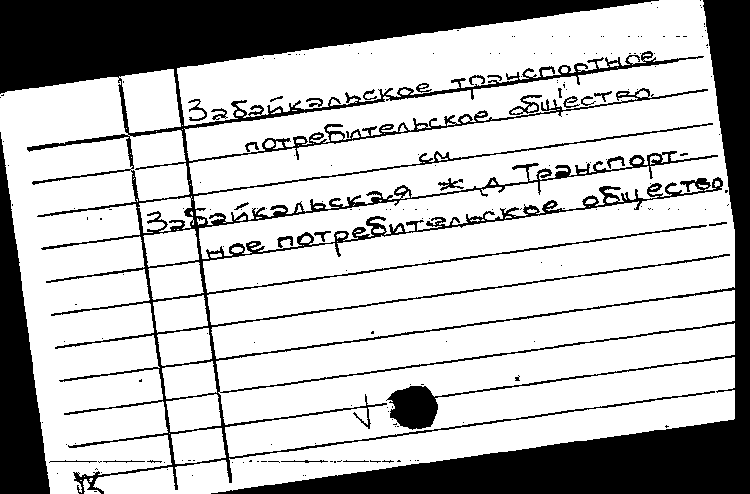 Забайкальское транспортное
потребительское общество
см
Забайкальская ж.д. Транспорт-
ное потребительское общество.